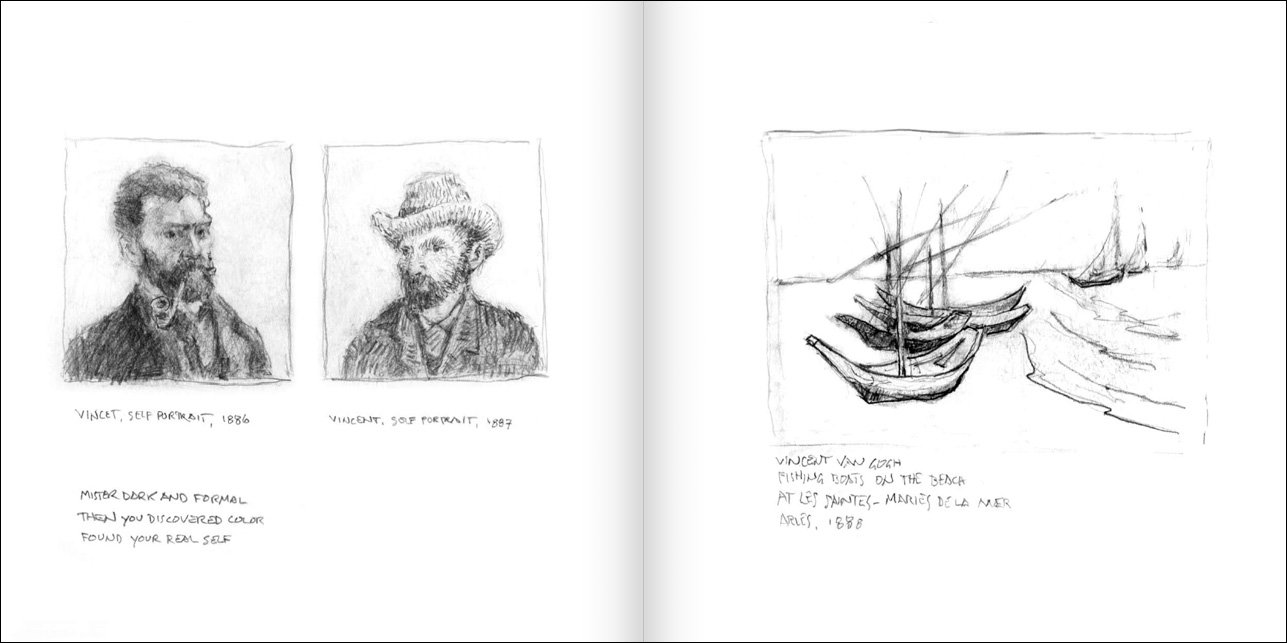 VINCET, SELF PORTRAIT, 1886
VINCENT, SELF PORTRAIT, 1887
MISTER DARK AND FORMAL
THEN YOU DISCOVERED COLOR
FOUND YOUR REAL SELF
VINCENT VAN GOGH
FISHING BOATS ON THE BEACH
AT LES SAINTES-MARIES DE LA MER
ARLES, 1888